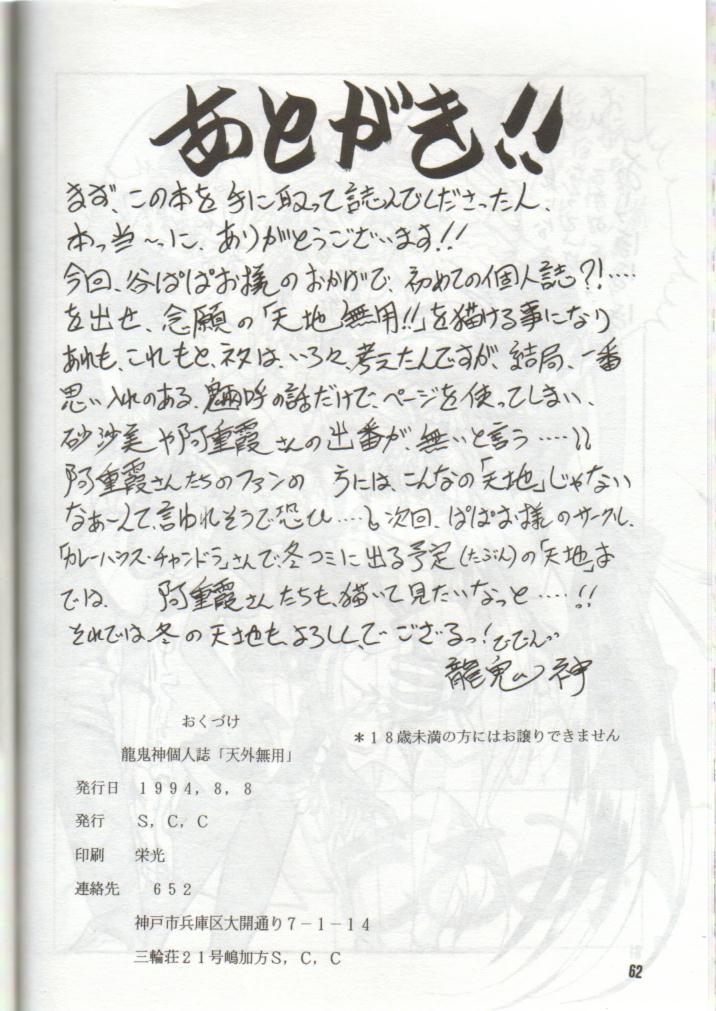 あとがき!!
まず、この本を手に取って読んでくださった人、
本っ当〜っに、ありがとうございます!!
今回、谷ぱぱお様のおかげで、初めての個人誌?!‥‥
を出せ、念願の「天地無用!!」を描ける事になり
あれも、これもと、ネタは、いろ々、考えたんですが、結局、一番
思い入れのある、魎呼の話だけで、ページを使ってしまい、
砂沙美や阿重霞さんの出番が、無いと言う‥‥
阿重霞さんたちのファンの 方には、こんなの「天地」じゃない
なぁーんて、言われそうで恐ひ‥‥も次回、ぱぱお様のサークル、
「カレーハウス・チャンドラ」さんで、冬コミに出る予定(たぶん)の「天地」本
では、 阿重霞さんたちも、描いて見たいなっと‥‥!!
それでは、冬の天地も、よろしくでござるっ!
龍鬼神
おくづけ
龍鬼神個人誌「天外無用」
*18歳未満の方にはお譲りできません
発行日 1994,8,8
発行 S,C,C
印刷 栄光
連絡先 652
神戸市兵庫区大開通り7-1-14
三輪荘21号嶋加方S,C,C
62